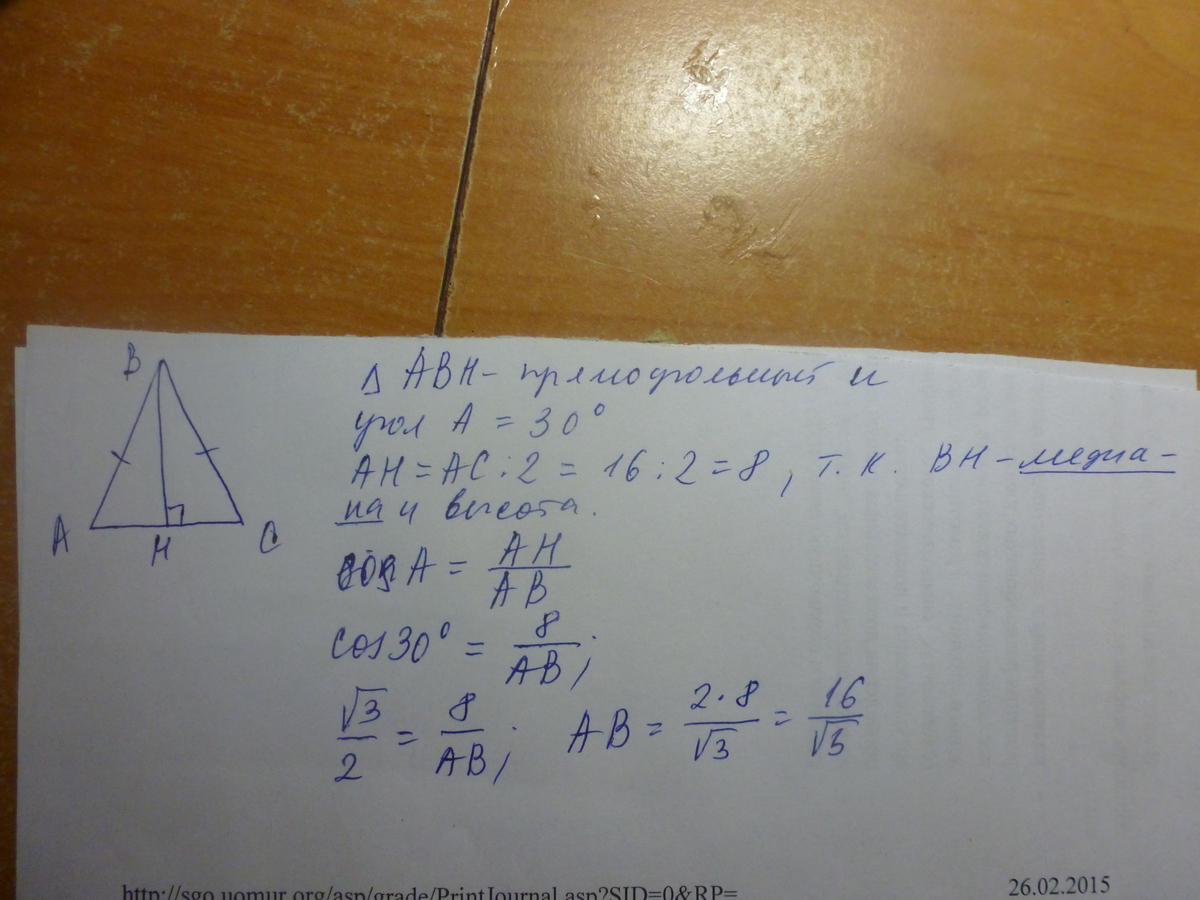 B
A
H
C
Δ ABH - прямоугольный и
угол A = 30°
AH = AC : 2 = 16 : 2 = 8 , т. к. BH - медиа-
на и высота.
cos A = AH / AB
cos 30° = 8 / AB ;
√3 / 2 = 8 / AB ; AB = 2 · 8 / √3 = 16 / √3
http://sgo.uomur.org/asp/grade/PrintJournal.asp?SID=0&RP=
26.02.2015